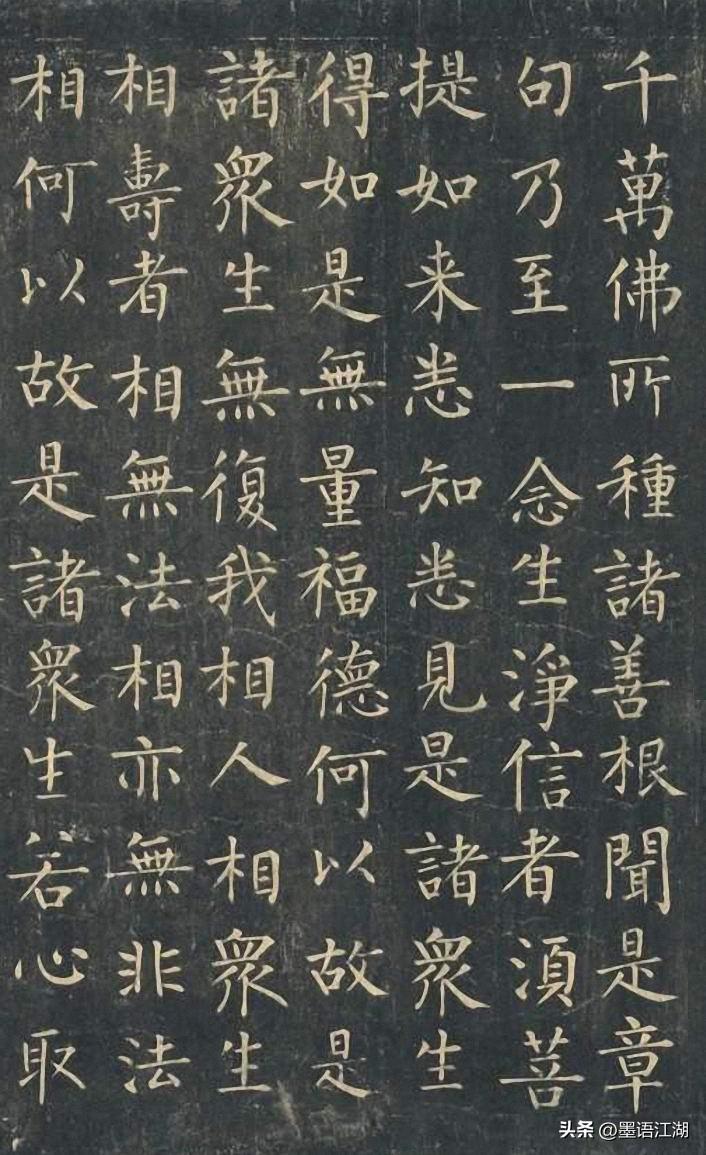 千萬佛所種諸善根聞是章
句乃至一念生淨信者湏菩
提如来悉知悉見是諸衆生
得如是無量福德何以故是
諸衆生無復我相人相衆生
相壽者相無法相亦無非法
相何以故是諸衆生若心取
头条 @墨语江湖